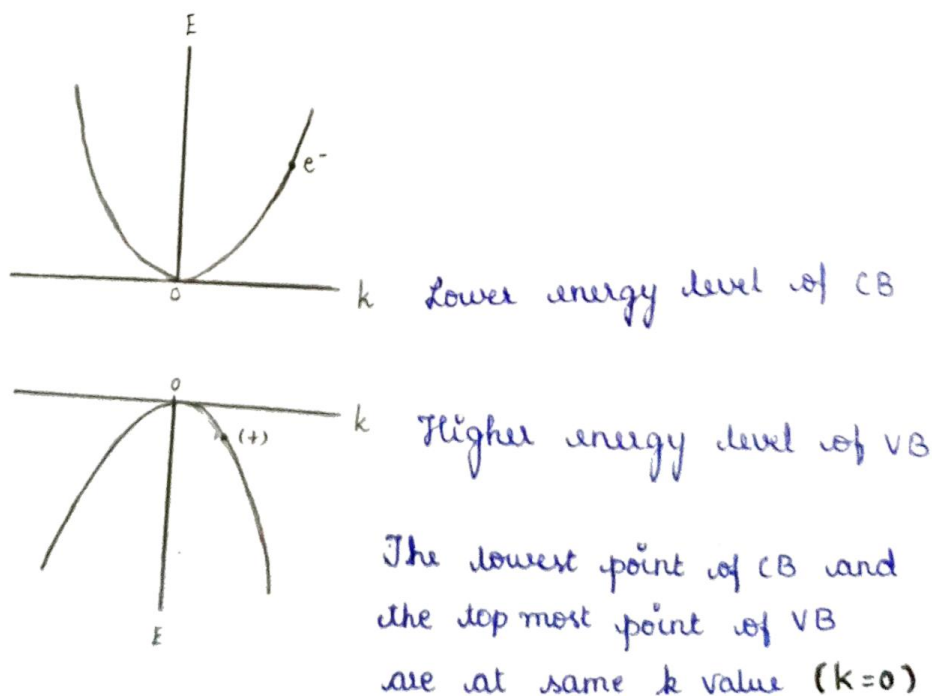 E
e⁻
0
k Lower energy level of CB
0
(+)
k Higher energy level of VB
E
The lowest point of CB and
the top most point of VB
are at same k value (k=0)